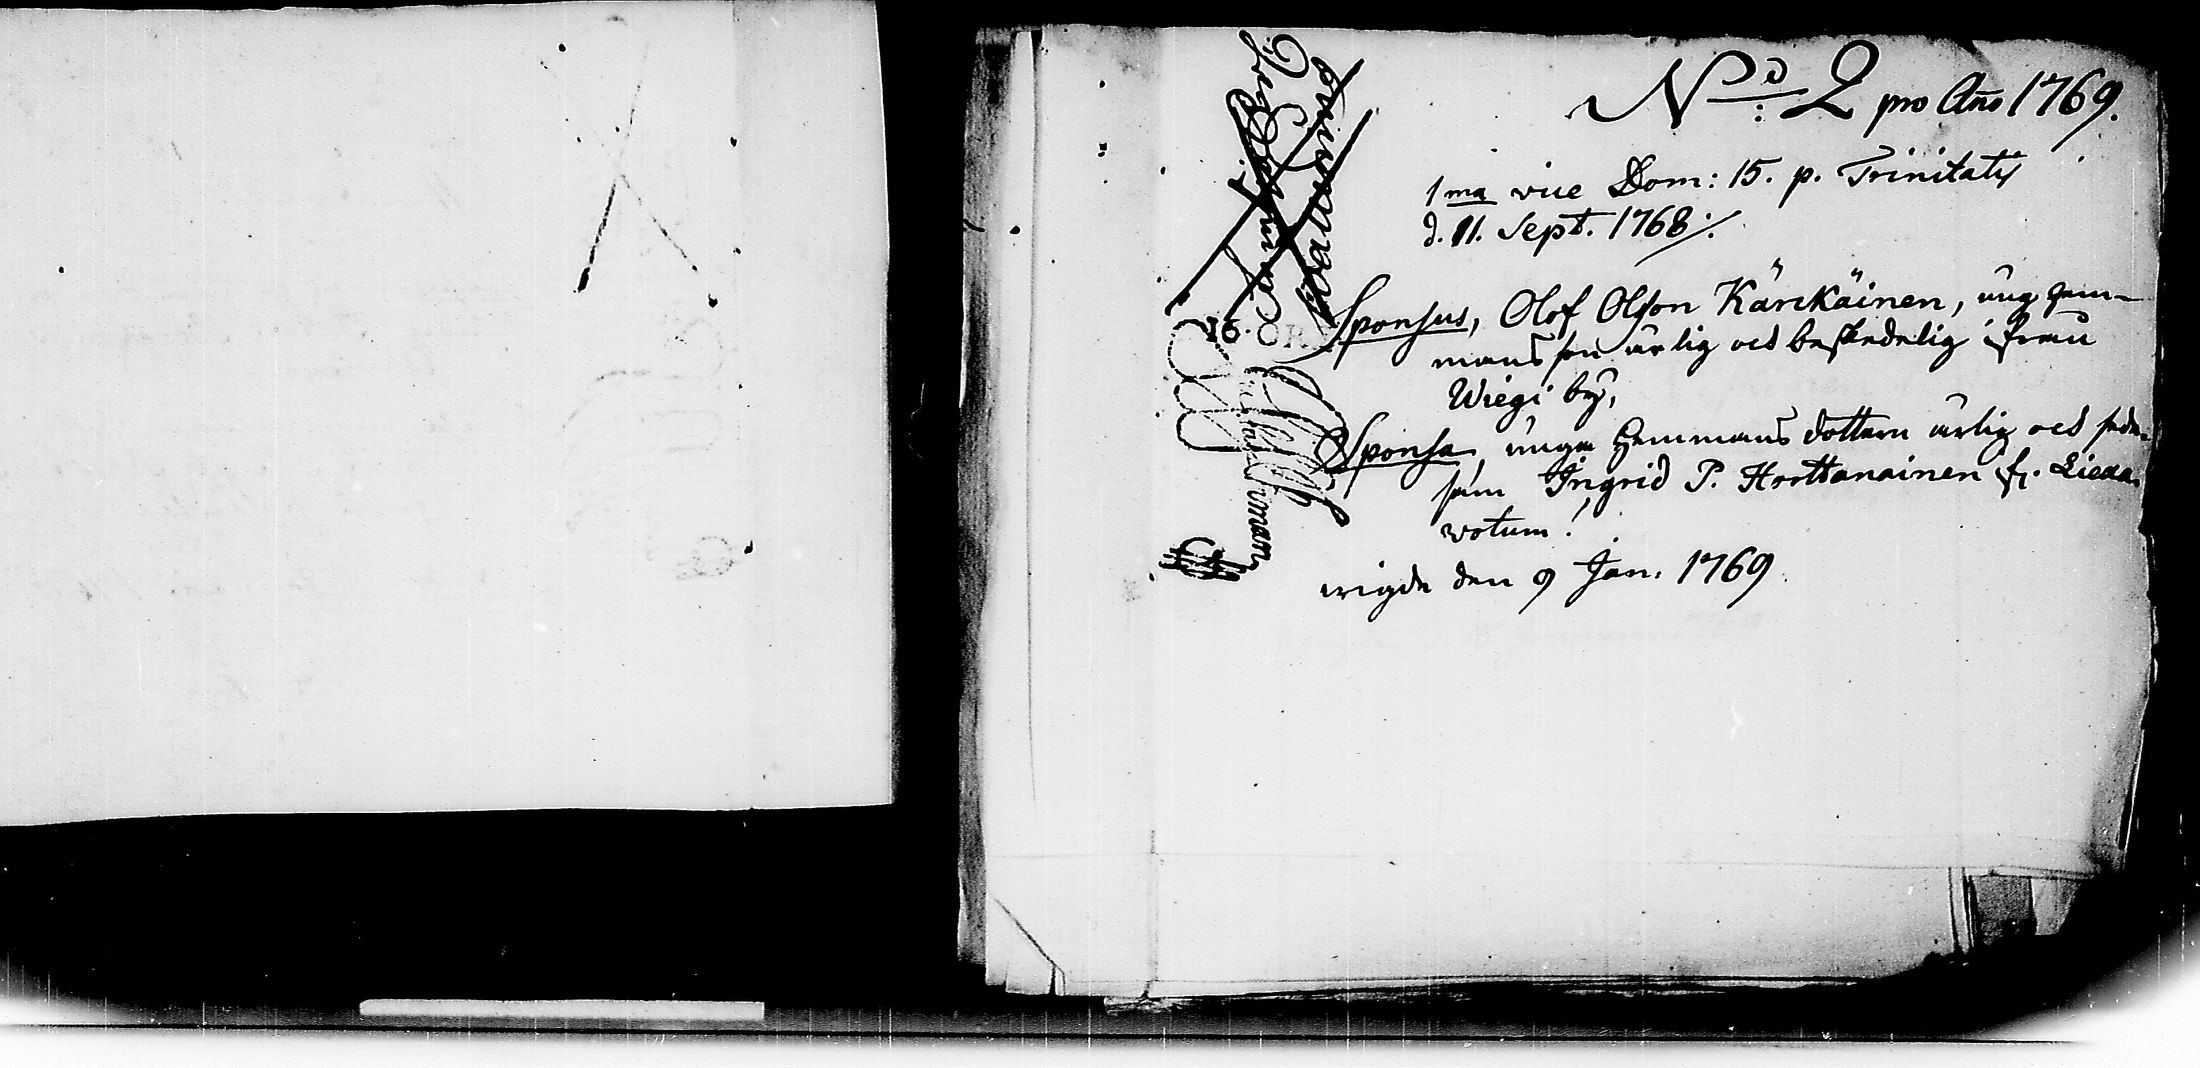 No: 2 pro Año 1769.
1ma vice Dom: 15. p. Trinitatis
d. 11. Sept. 1768 ./.
Sponsus, Olof Olsson Kärckäinen, ung hem-
mans son ärlig och beskedelig ifrån
Wiegi by,
Sponsa, unga hemmans dottern ärlig och sede-
sam Ingrid P. Horttanainen fr.
votum!
wigde den 9 Jan. 1769